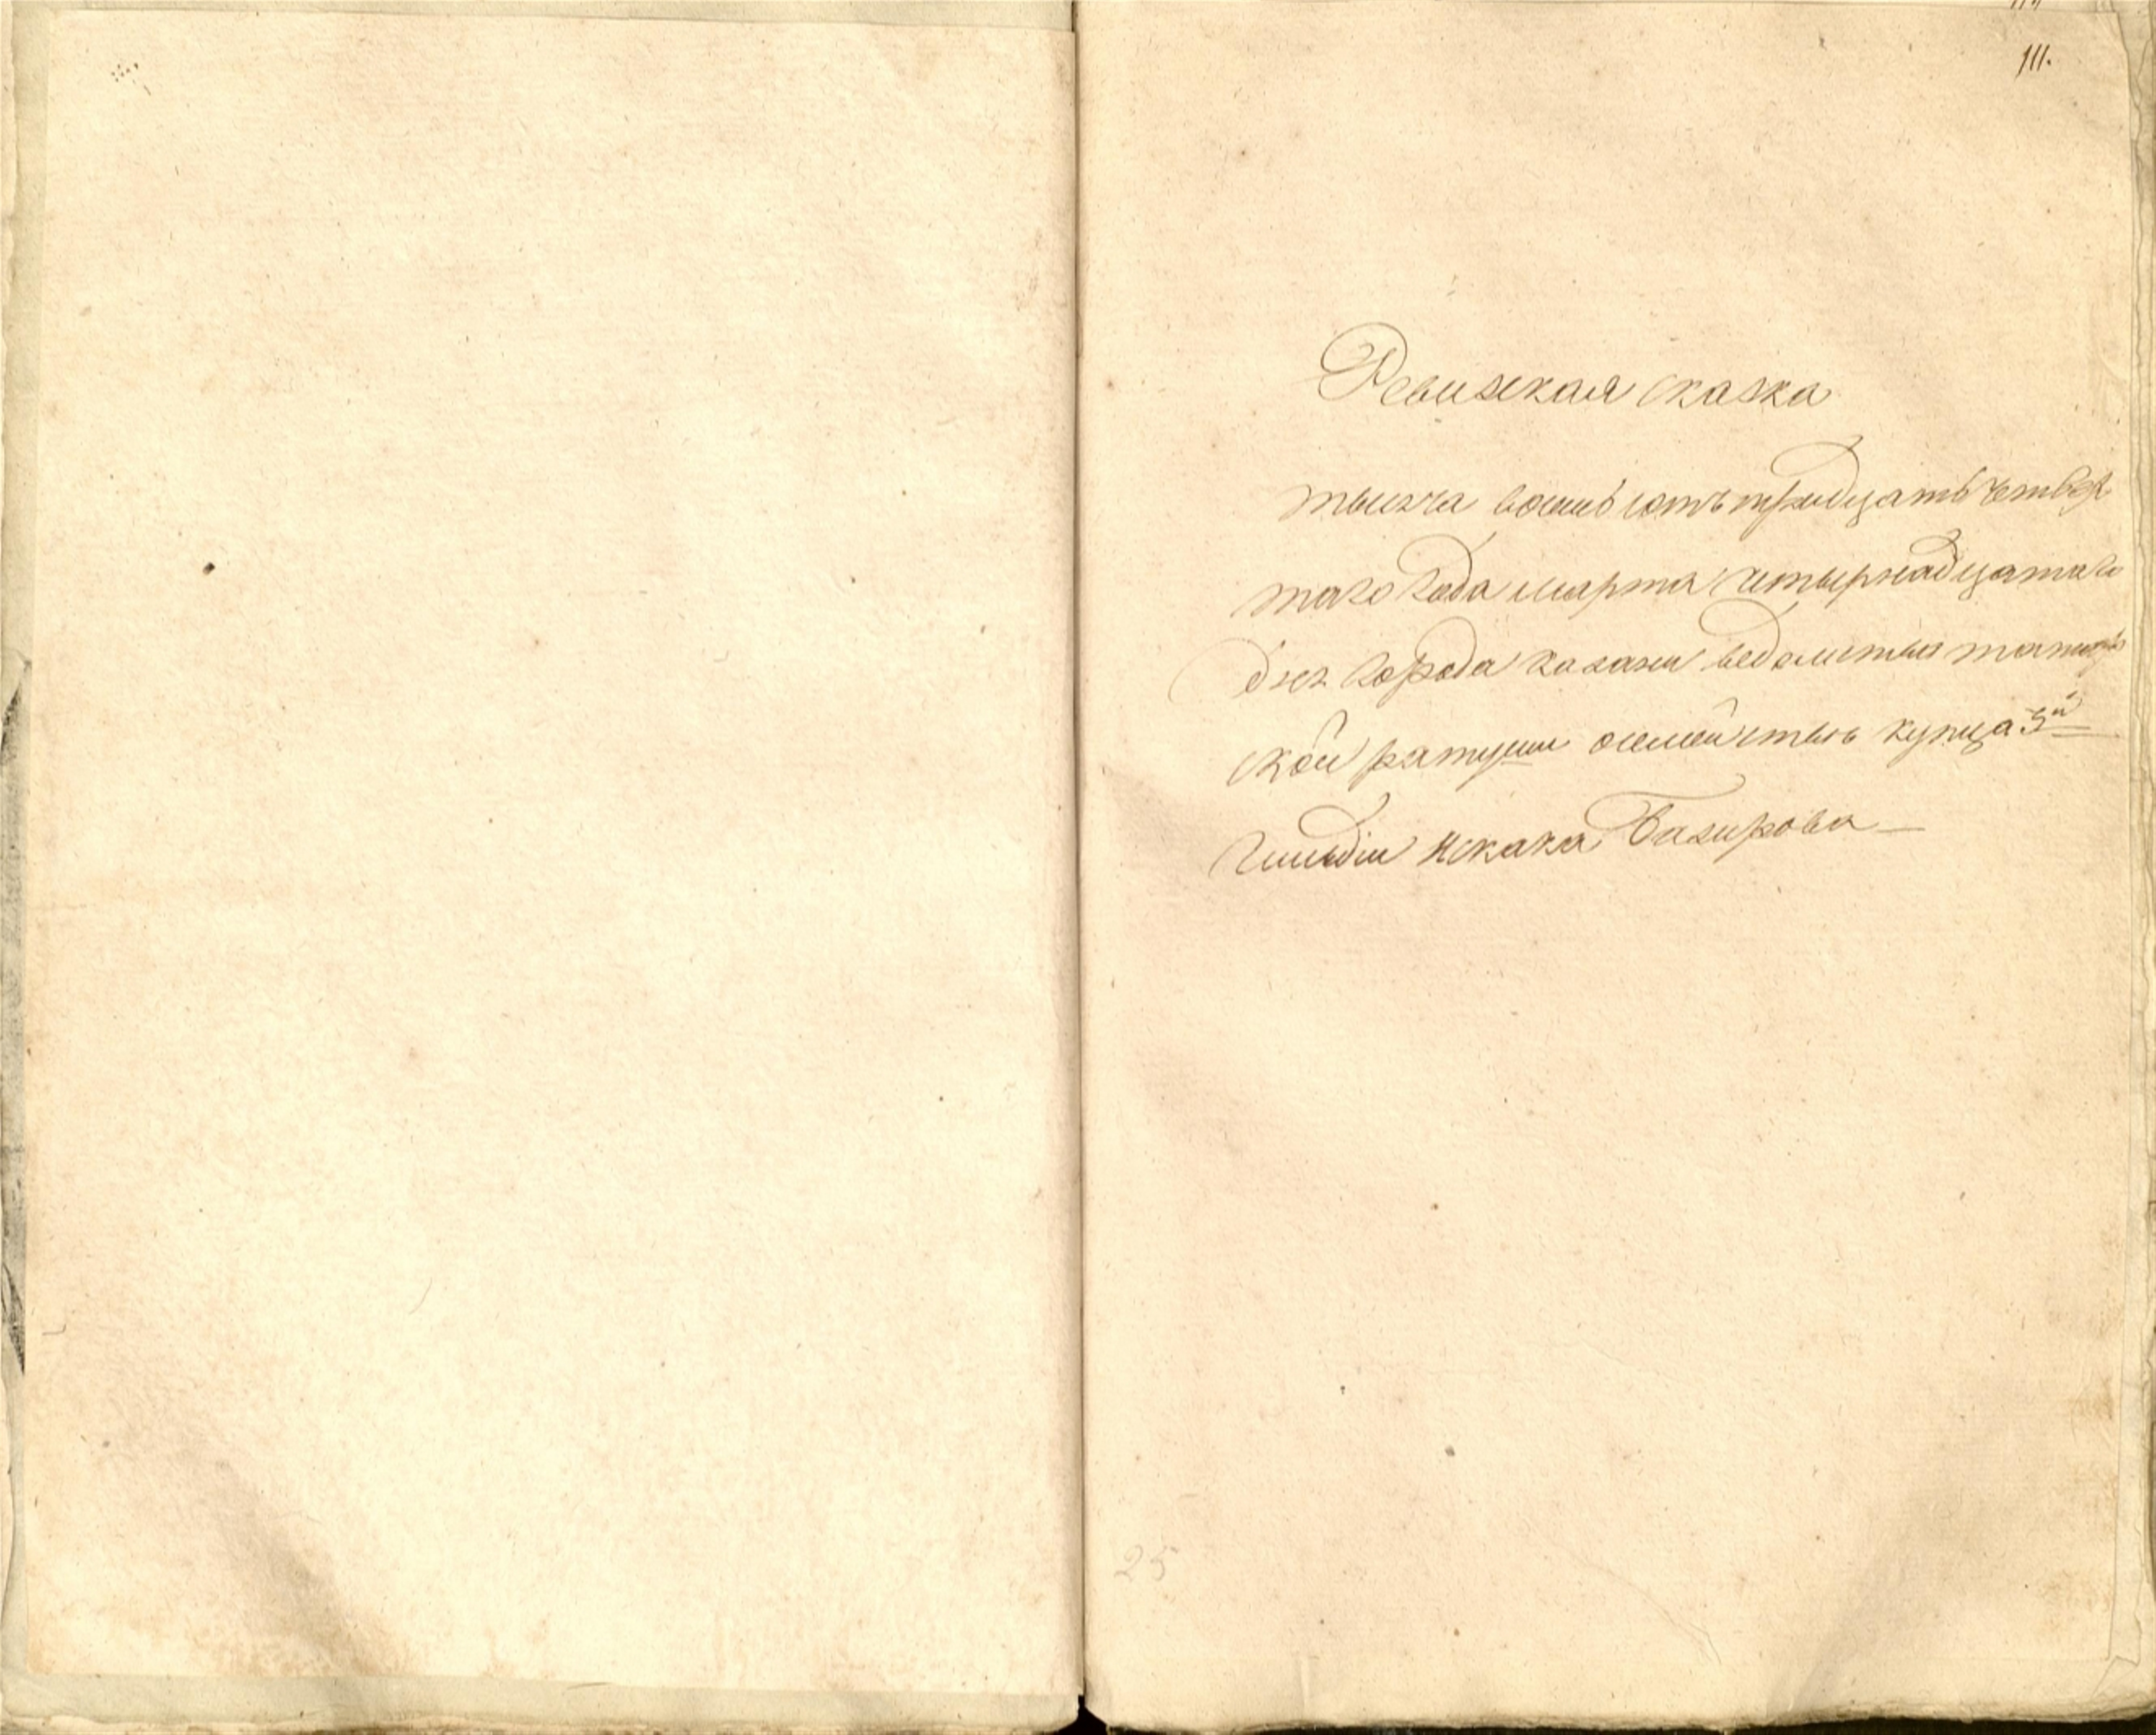 111.
Ревизская сказка
тысяча восемьсотъ тридцать четвер
таго года марта четырнадцатаго
дня города казани ведомства татар
ской ратуши осемействе купца 3й
гильдiи Искака Базирова
25